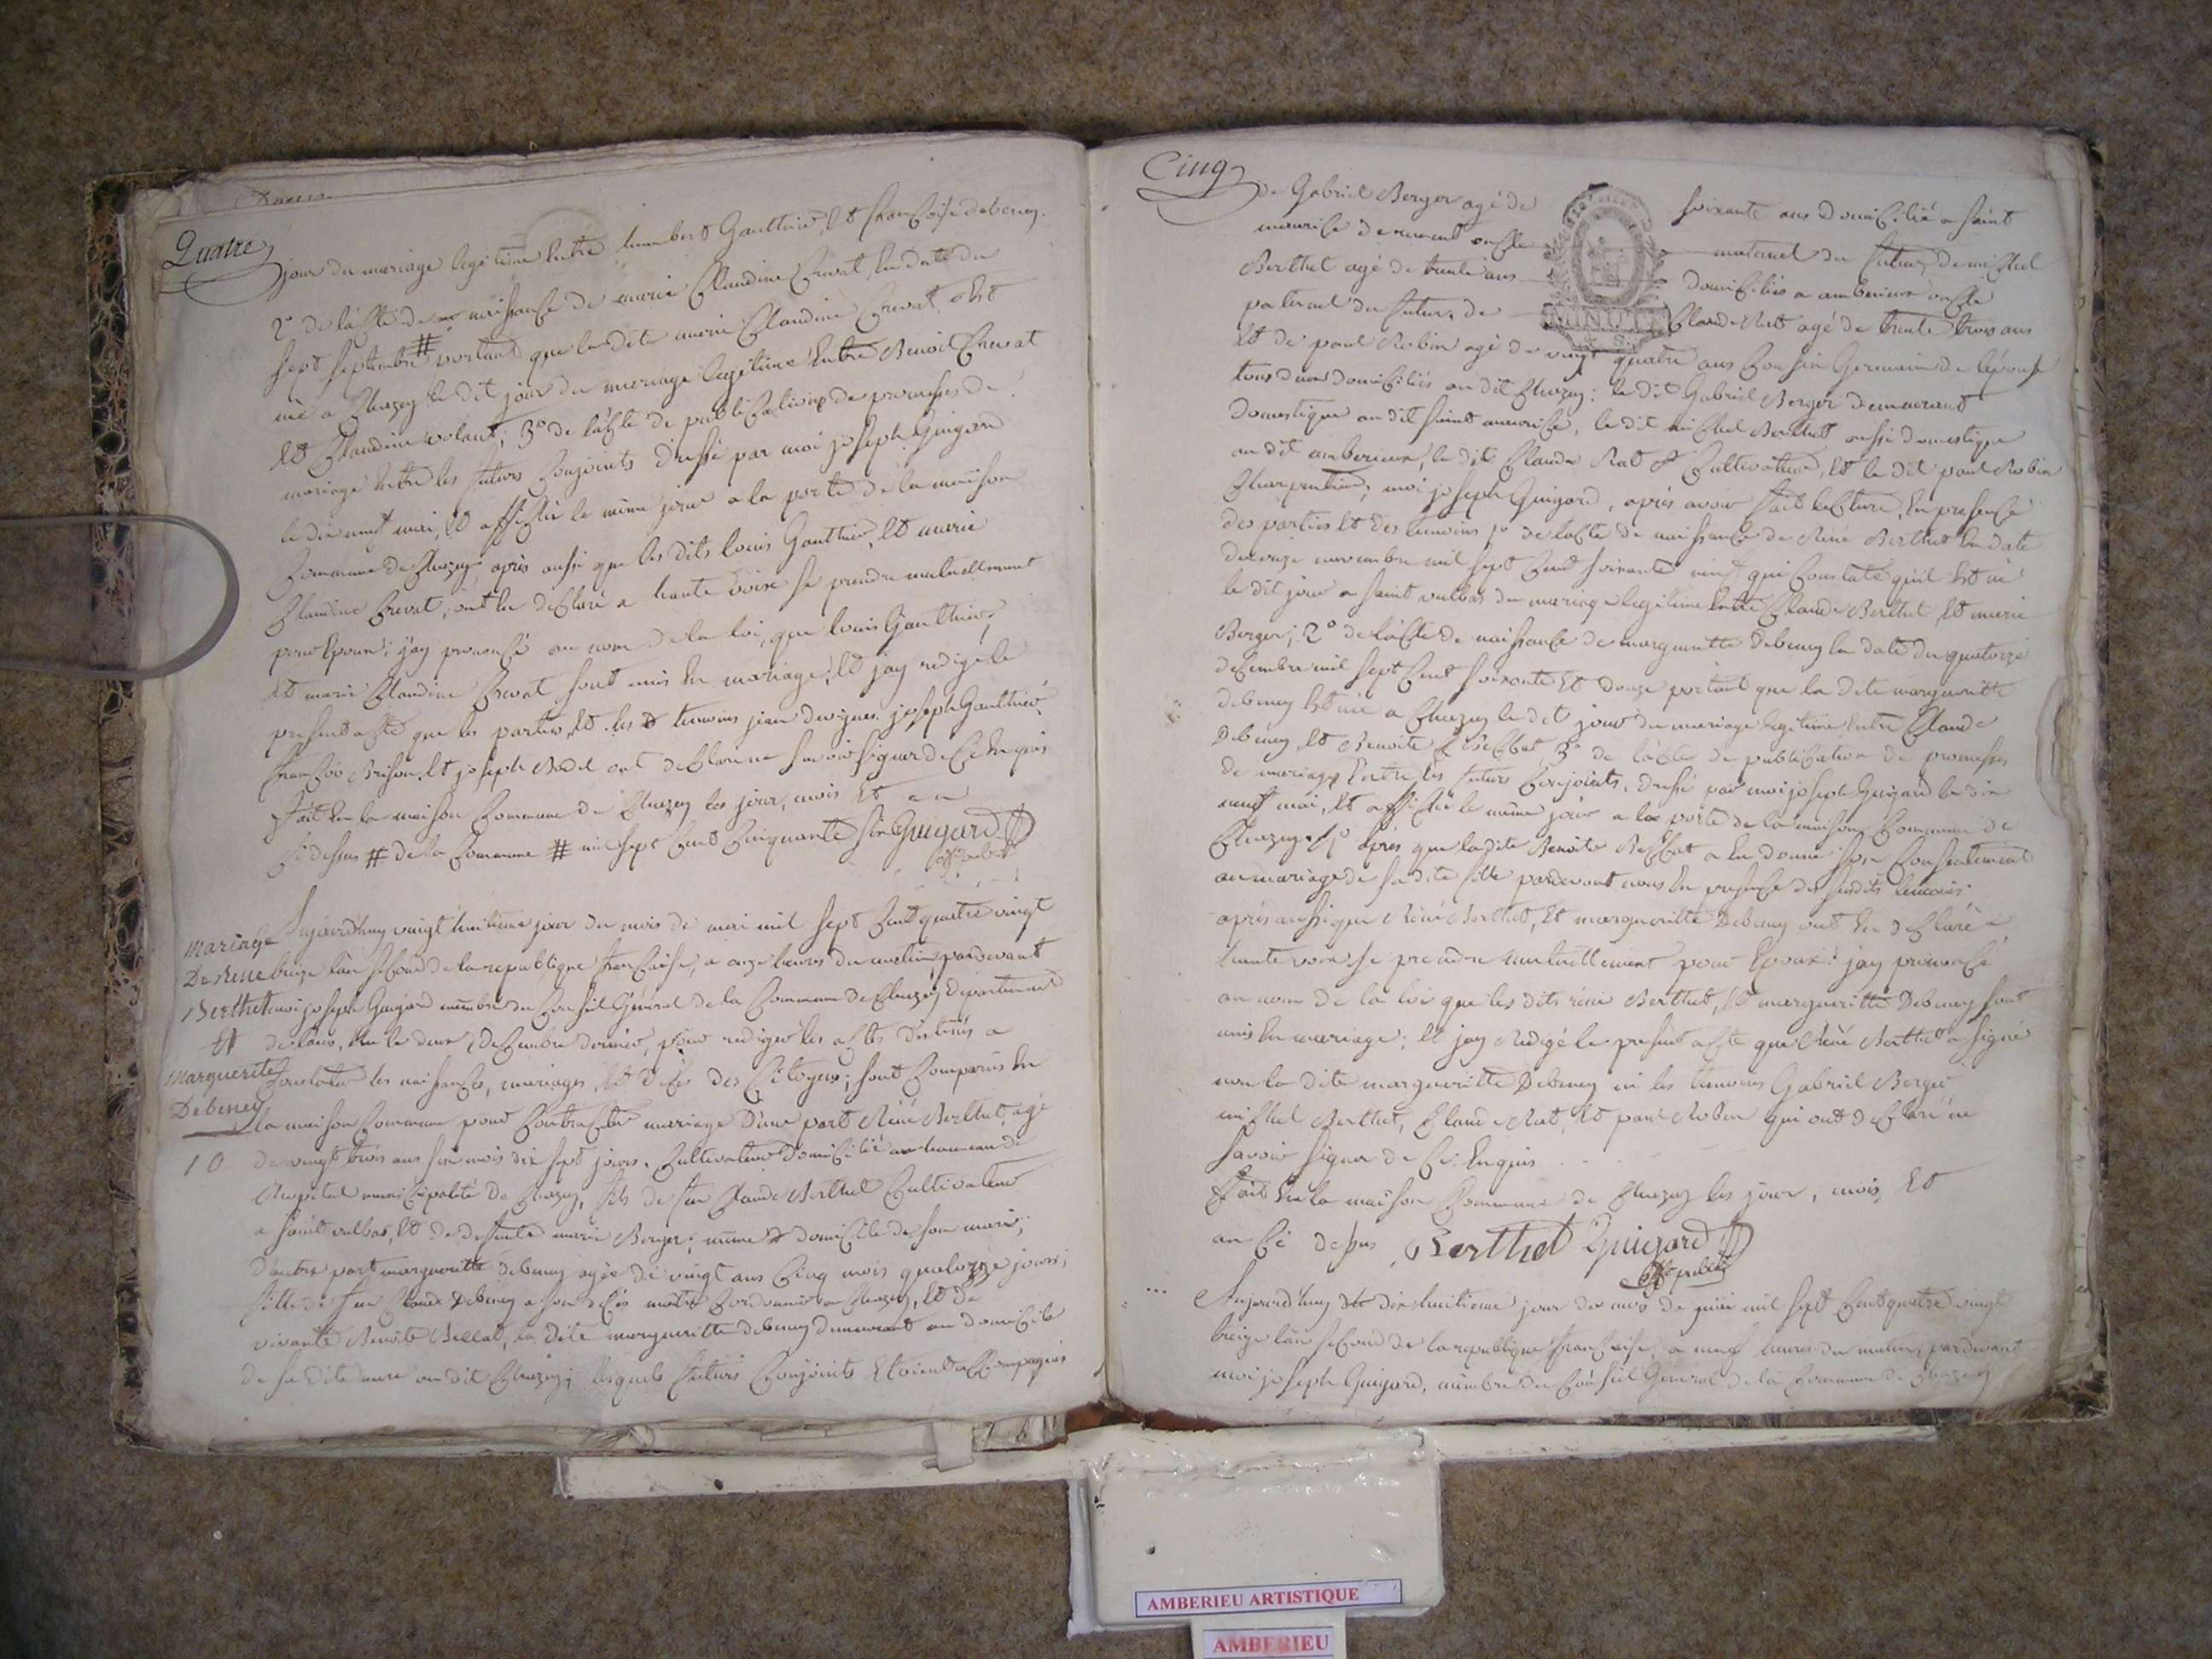 Quatre
jour du mariage legitime Entre humbert Gauthier, Et francoise debeney.
2° de l'acte de naissance de marie Claudine Crevat, En date du
sept septembre # portant que la dite marie Claudine Crevat est
née a Chazey le dit jour du mariage legitime Entre Benoit Crevat
Et Claudine volant; 3° de l'acte de publication de promesses de
mariage Entre les futurs Conjoints dressé par moi joseph Guigard
le dix neuf mai, Et affiché le même jour a la porte de la maison
Commune de Chazey; après aussi que les dits louis Gauthier, Et marie
Claudine Crevat, ont Eu declaré a haute voix se prendre mutuellement
pour Epoux; j'ay prononcé au nom de la loi, que louis Gauthier,
Et marie Claudine Crevat sont unis En mariage; Et j'ay redigé le
present acte que les parties, Et les temoins jean joseph Gauthier,
francois Brison, Et joseph Badel ont declaré ne savoir signer de Ce Enquis
fait En la maison Commune de Chazey les jour, mois Et an
Ci dessus # de la Commune # mil sept Cent Cinquante six Guigard
off. public
mariage
De Rene
Berthet
Et
Marguerite
Debeney
10
Aujourd'huy vingt huitieme jour du mois de mai mil sept Cent quatre vingt
treize l'an second de la republique francaise, a onze heures du matin, pardevant
moi joseph Guigard membre du Conseil Général de la Commune de Chazey departement
de l'ain, Elu le deux Decembre dernier, pour rediger les actes destinés a
Constater les naissances, mariages, Et décès des Citoyens; sont Comparus En
la maison Commune pour Contracter mariage D'une part René Berthet, agé
de vingt trois ans six mois dix sept jours, Cultivateur Domicilié au hameau de
municipalité de Chazey, fils de feu Claude Berthet Cultivateur
a saint vulbas, Et de defunte marie Berger; même domicile de son mari;
D'autre part margueritte debeney agée de vingt ans Cinq mois quatorze jours;
fille de feu Claude Debeney a son décès maitre Cordonnier a Chazey, Et de
vivante Benoite Beccat, la dite margueritte debeney demeurant au domicile
de sa dite mere au dit Chazey; lesquels futurs Conjoints Etoient accompagnés
Cinq
de Gabriel Berger agé de soixante ans Domicilié a saint
maurice de remens oncle maternel du futur, de michel
Berthet agé de trente ans domicilié a amberieux oncle
paternel du futur, de Claude Rat agé de trente trois ans
Et de paul Robin agé de vingt quatre ans Cousin Germain de l'épouse
tous deux domiciliés au dit Chazey; le dit Gabriel Berger demeurant
Domestique au dit saint maurice, le dit michel Berthet aussi domestique
au dit amberieux, le dit Claude Rat Cultivateur, Et le dit paul Robin
Charpentier; moi joseph Guigard, après avoir fait lecture, En presence
des parties Et des temoins 1° de l'acte de naissance de René Berthet En date
du onze novembre mil sept Cent soixante neuf qui Constate qu'il Est né
le dit jour a saint vulbas du mariage legitime Entre Claude Berthet Et marie
Berger; 2° de l'acte de naissance de margueritte debeney En date du quatorze
decembre mil sept Cent soixante Et douze portant que la dite margueritte
debeney Est née a Chazey le dit jour du mariage legitime Entre Claude
Debeney, Et Benoite Beccat 3° de l'acte de publication de promesses
de mariage Entre les futurs Conjoints, dressé par moi joseph Guigard le dix
neuf mai, Et affiché le même jour a la porte de la maison Commune de
Chazey. 4° après que la dite Benoite Beccat a Eu donné son Consentement
au mariage de sa dite fille pardevant nous En presence des susdits temoins.
après aussi que René Berthet, Et margueritte Debeney ont Eu declaré a
haute voix se prendre mutuellement pour Epoux: j'ay prononcé
au nom de la loi que les dits réné Berthet, Et margueritte Debeney sont
unis En mariage; Et j'ay Redigé le present acte que Réné Berthet a signé
non la dite margueritte Debeney ni les temoins Gabriel Berger
michel Berthet, Claude Rat, Et paul Robin qui ont declaré ne
savoir signer de Ce Enquis
fait En la maison Commune de Chazey les jour, mois, Et
an Ci dessus Berthet Guigard
off. public
Aujourd'huy dix huitieme jour du mois de juin mil sept Cent quatre vingt
treize l'an second de la republique francaise, a neuf heures du matin, pardevant
moi joseph Guigard, membre du Conseil General de la Commune de Chazey
MINUTE
AMBERIEU ARTISTIQUE
AMBERIEU